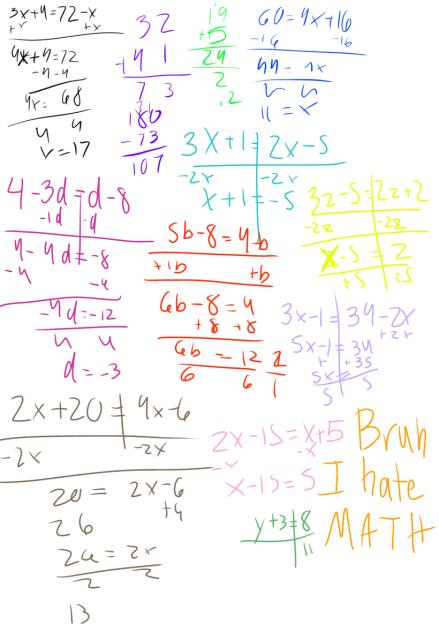 3x+4=72-x
+x +x
4x+4=72
-4-4
4x= 68
4 4
x=17
32
+41
73
180
-73
107
19
+5
24
2
12
60=4x+16
-16 -16
44=4x
4 4
11=x
3x+1=2x-5
-2x -2x
x+1=-5
4-3d=d-8
-1d -d
4-4d=-8
-4 -4
-4d=-12
4 4
d=-3
5b-8=4-b
+1b +b
6b-8=4
+8 +8
6b=12 2
6 6 1
3z-5=2z+2
-2z -2z
x-5=2
+5 +5
3x-1=34-2x
+2x
5x-1=34
+ +35
5x=
5 5
2x+20=4x-6
-2x -2x
20=2x-6
+4
26
26=2x
2 2
13
2x-15=x+5
-x -x
x-15=5
y+3=8
11
Bruh
I hate
MATH